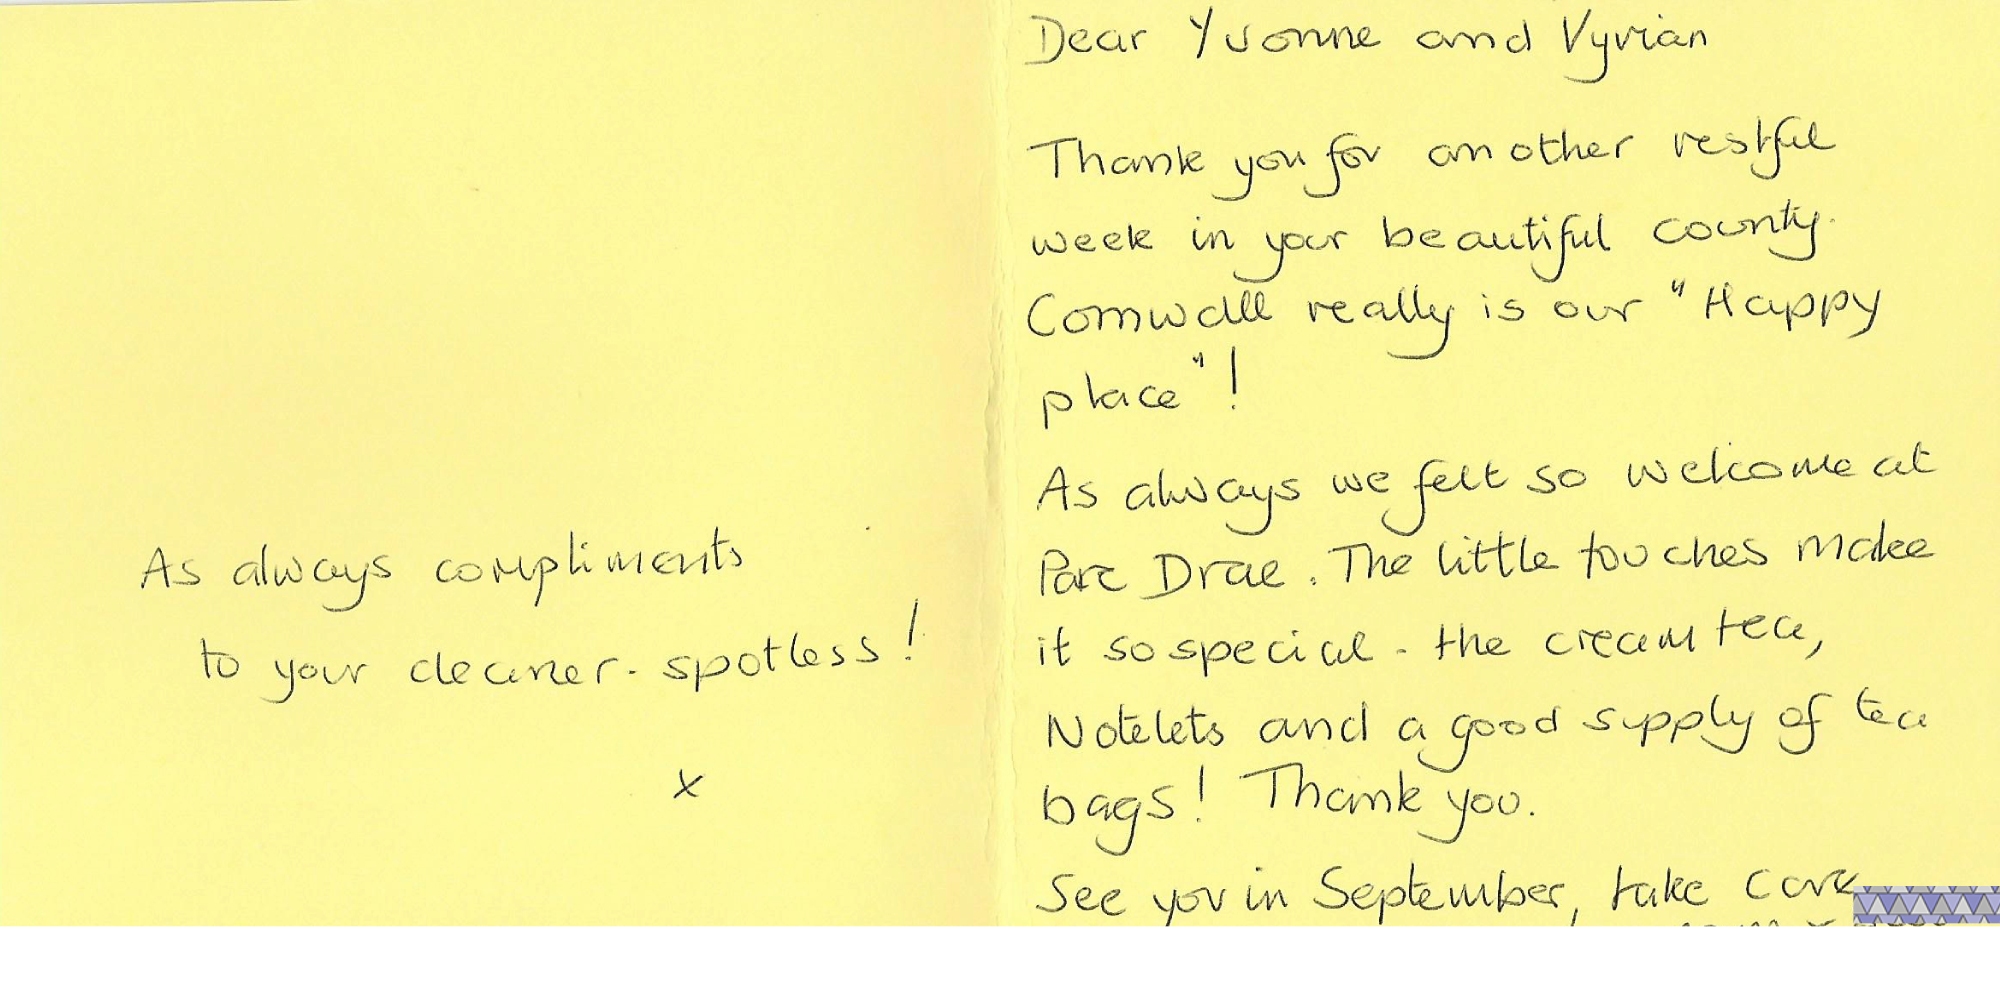 As always compliments
to your cleaner. spotless!
x
Dear Yvonne and Vyvian
Thank you for another restful
week in your beautiful county.
Cornwall really is our "Happy
place"!
As always we felt so welcome at
Parc Drae. The little touches make
it so special - the cream tea,
Notelets and a good supply of tea
bags! Thank you.
See you in September, take care